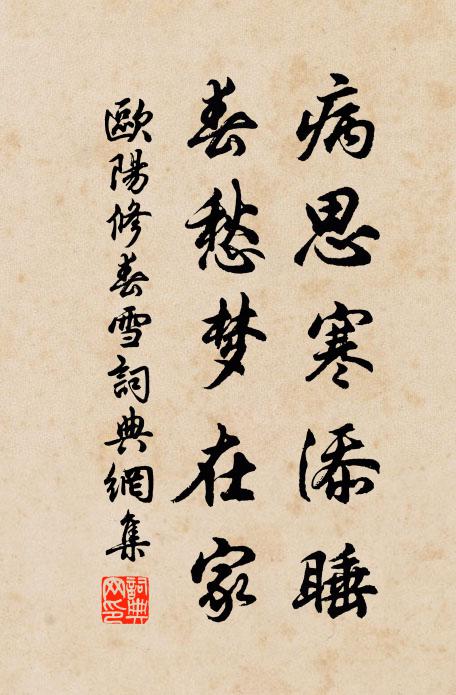 病思寒添睡
春愁梦在家
歐陽修春雪詞典網集
詞典網印